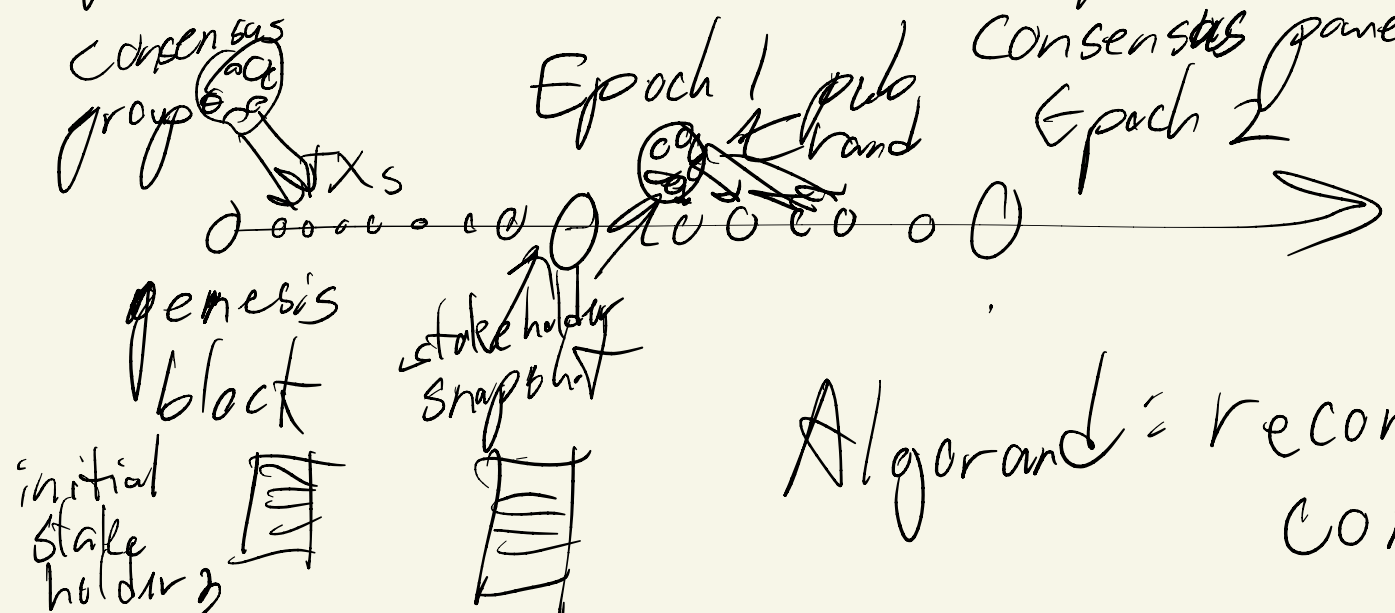 consensus
group
TXs
Epoch 1 pub
rand
Consensus pane
Epoch 2
genesis
block
stakeholder
snapshot
initial
stake
holders
Algorand: recon
con